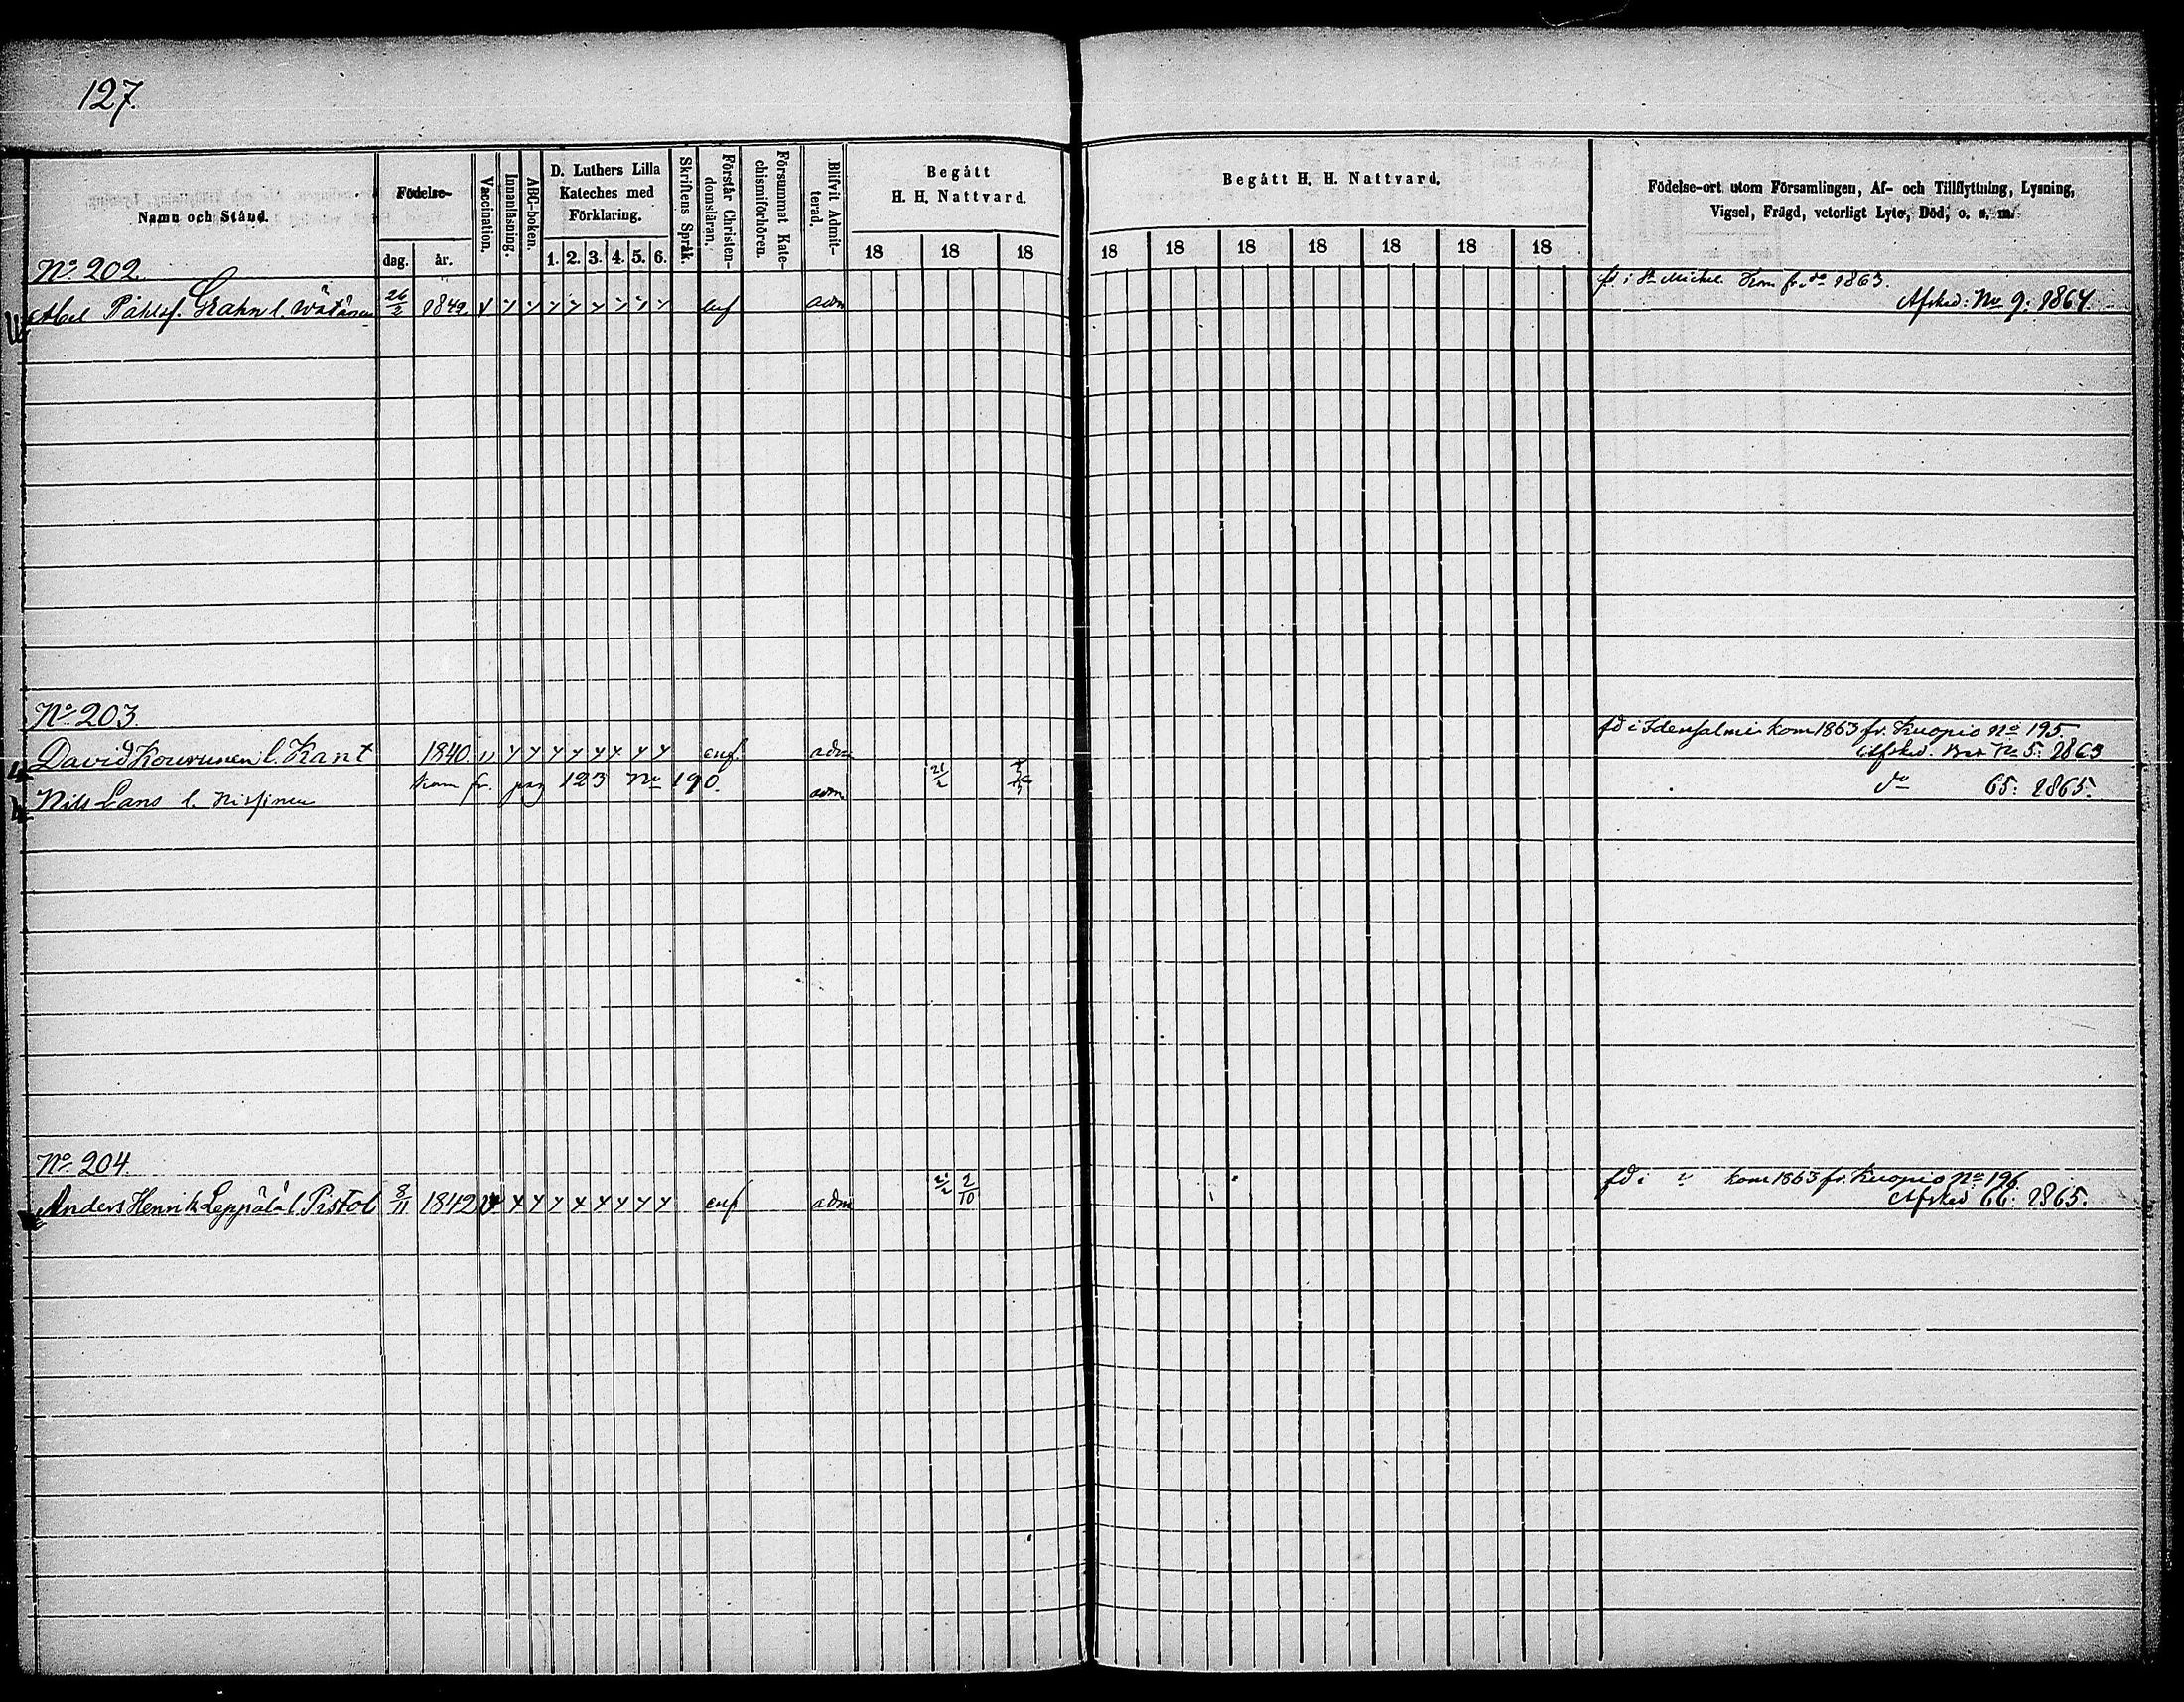 127.
Namn och Stånd.
Födelse-
dag.
år.
Vaccination.
Innanläsning.
ABC-boken.
D. Luthers Lilla
Kateches med
Förklaring.
1. 2. 3. 4. 5. 6.
Skriftens Språk.
Förstår Christen-
domsläran.
Försummat Kate-
chismiförhören.
Blifvit Admit-
terad.
Begått
H. H. Nattvard.
18 18 18
Begått H. H. Nattvard.
18 18 18 18 18 18 18
Födelse-ort utom Församlingen, Af- och Tillflyttning, Lysning,
Vigsel, Frägd, veterligt Lyte, Död, o. s. m.
No 202.
Abel Påhlsf. Grahn l. Wätänen 26/2 1842 adm
fd i St Michel Kom fr. do 1863.
Afsked: No 9: 1864.
No 203.
David Kouvunen l. Kant 1840 enf. adm
fd i Idensalmi kom 1863 fr. Kuopio No 195
Afsked. No 5: 1863
Nils Lans l. Nissinen kom fr. pag 123 No 190. adm 21/2
do 65: 1865.
No 204.
Anders Henrik Leppälä l. Pistol 8/11 1842 enf adm 2/10
fd i " kom 1863 fr. Kuopio No 196
Afsked 66: 1865.